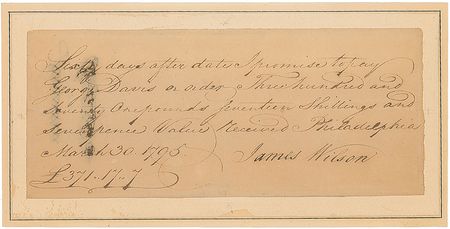 Sixty days after date I promise to pay
George Davis or order Three hundred and
Seventy One pounds Seventeen Shillings and
Sevenpence Value Received Philadelphia
March 30. 1795.
James Wilson
£371..17..7